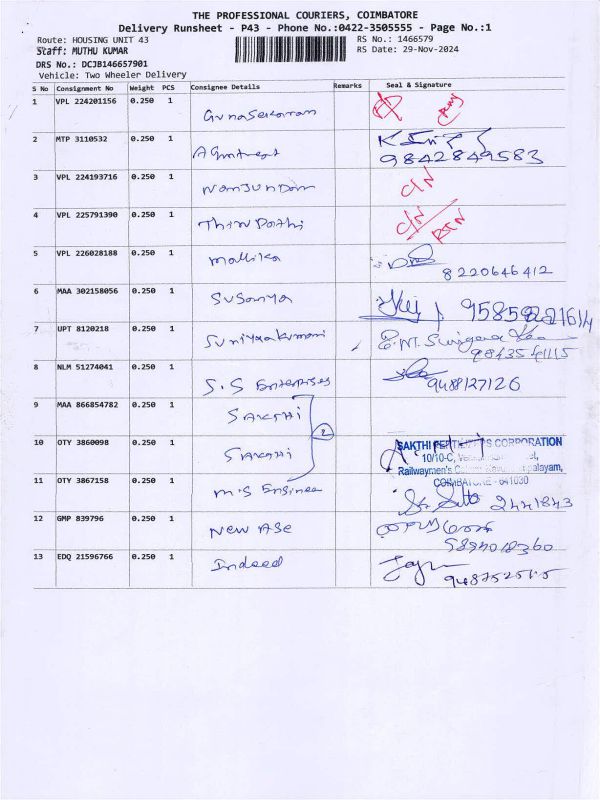 THE PROFESSIONAL COURIERS, COIMBATORE
Delivery Runsheet - P43 - Phone No.:0422-3505555 - Page No.:1
Route: HOUSING UNIT 43
RS No.: 1466579
Staff: MUTHU KUMAR
RS Date: 29-Nov-2024
DRS No.: DCJB146657901
Vehicle: Two Wheeler Delivery
S No Consignment No Weight PCS Consignee Details Remarks Seal & Signature
1 VPL 224201156 0.250 1 Gunasekaran
2 MTP 3110532 0.250 1 9842849583
3 VPL 224193716 0.250 1 Nanjundan C/N
4 VPL 225791390 0.250 1 Thirupathi C/N RTN
5 VPL 226028188 0.250 1 Mallika 8220646412
6 MAA 302158056 0.250 1 Susanya
7 UPT 8120218 0.250 1 9843541115
8 NLM 51274041 0.250 1 S.S Enterprises 9488127126
9 MAA 866854782 0.250 1 SAKTHI
2
10 OTY 3860098 0.250 1 SAKTHI
SAKTHI FERTILIZERS CORPORATION
10/10-C,
Railwaymen's
COIMBATORE - 641030
11 OTY 3867158 0.250 1 M.S Enginee 2441843
12 GMP 839796 0.250 1 New Age
13 EDQ 21596766 0.250 1 Indeed